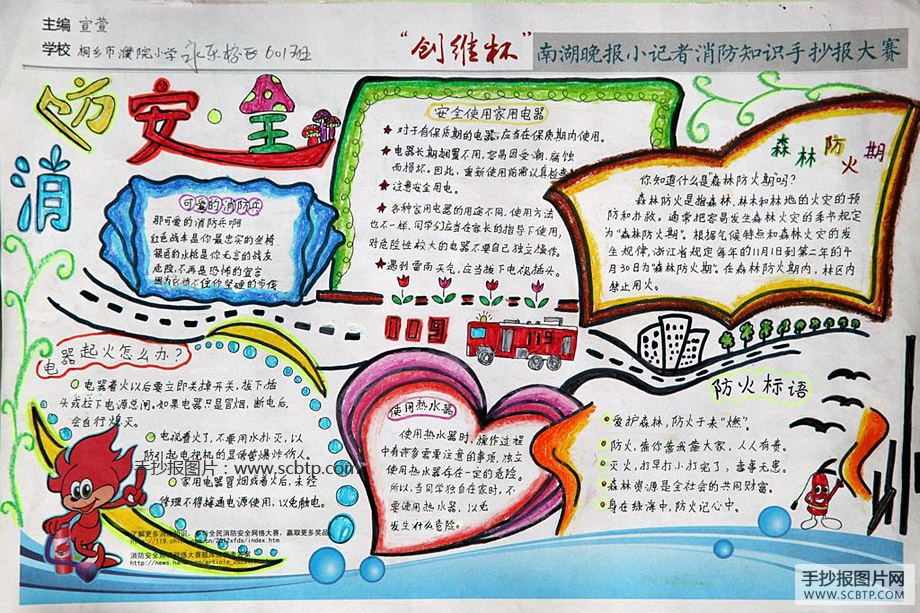 主编 宣萱
学校 桐乡市濮院小学 601班
“创维杯”南湖晚报小记者消防知识手抄报大赛
消防安全
可爱的消防兵
那可爱的消防兵啊
红色战车是你最忠实的坐椅
银色的水枪是你无言的战友
危险,不再是恐怖的宣言
安全使用家用电器
对于有保质期的电器,应当在保质期内使用。
电器长期搁置不用,容易因受潮、腐蚀
而损坏。因此,重新使用前需认真检查
注意安全用电。
各种家用电器的用途不同,使用方法
也不一样,同学们应当在家长的指导下使用,
对危险性较大的电器不要自己独立操作。
遇到雷雨天气,应当拔下电视插头。
森林防火期
你知道什么是“森林防火期”吗?
森林防火是指森林、林木和林地的火灾的
预防和扑救。通常把容易发生森林火灾的季节规定
为“森林防火期”。根据气候特点和森林火灾的发
生规律,浙江省规定每年的11月1日到第二年的4
月30日为“森林防火期”。在森林防火期内,林区内
禁止用火。
119
119
电器起火怎么办?
电器着火以后要立即关掉开关,拔下插
头或拉下电源总闸,如果电器只是冒烟,断电后,
会自行熄灭。
电视着火了,不要用水扑灭,以
防引起电视机的显像管爆炸伤人。
家用电器冒烟或着火后,未经
修理不得接通电源使用,以免触电。
手抄报图片:www.scbtp.com
使用热水器
使用热水器时,操作过程
中有许多需要注意的事项,独立
使用热水器存在一定的危险。
所以,当同学独自在家时,不
要使用热水器,以免
发生什么危险。
防火标语
爱护森林,防火于未“燃”。
森林资源是全社会的共同财富。
身在绿海中,防火记心中。
手抄报图片网
WWW.SCBTP.COM